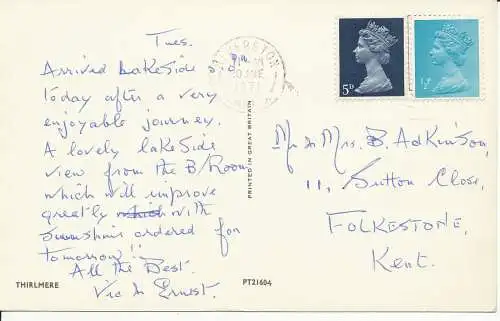 Tues.
Arrived Lakeside 3.0. pm
today after a very
enjoyable journey.
A lovely lakeside
view from the B/Room
which will improve
greatly which with
Sunshine ordered for
tomorrow!!
All the Best.
Vic & Ernest.
THIRLMERE
PT21604
PRINTED IN GREAT BRITAIN
1971
5D
½P
Mr & Mrs. B. Adkinson,
11, Sutton Close,
FOLKESTONE,
Kent.